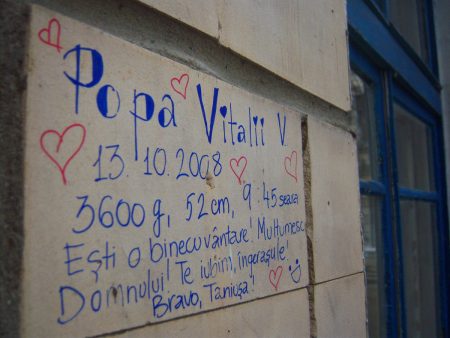 Popa Vitalii V.
13.10.2008
3600g, 52cm, 9:45 seara
Ești o binecuvântare! Mulțumesc
Domnului! Te iubim, îngerașule!
Bravo, Taniușa!